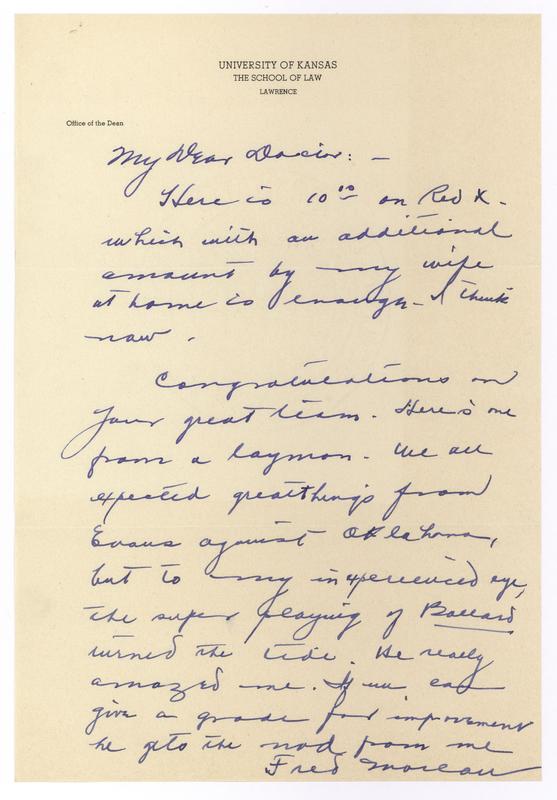 UNIVERSITY OF KANSAS
THE SCHOOL OF LAW
LAWRENCE
Office of the Dean
My Dear Doctor: –
Here is 10.00 on Red X -
which with an additional
amount by my wife
at home is enough - I think
now.
Congratulations on
your great team. Here's one
from a layman. We all
expected great things from
Evans against Oklahoma,
but to my inexperienced eye,
the super playing of Ballard
turned the tide. He really
amazed me. If we can
give a grade for improvement
he gets the nod from me
Fred Moreau